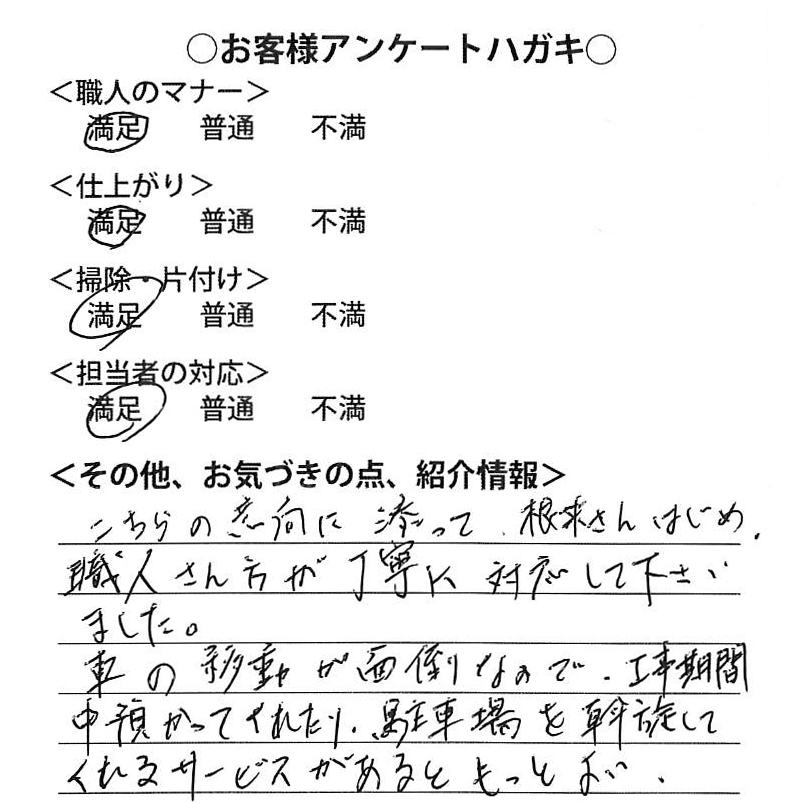 ○お客様アンケートハガキ○
＜職人のマナー＞
満足 普通 不満
＜仕上がり＞
満足 普通 不満
＜掃除・片付け＞
満足 普通 不満
＜担当者の対応＞
満足 普通 不満
＜その他、お気づきの点、紹介情報＞
こちらの意向に添って、根来さんはじめ、
職人さん方が丁寧に対応して下さい
ました。
車の移動が面倒なので、工事期間
中預かってくれたり、駐車場を斡旋して
くれるサービスがあるともっとよい。